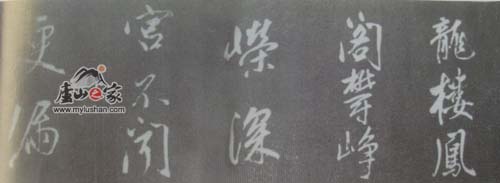 龍樓鳳
閣欝崢
嶸深
宮不聞
更漏
庐山之家
www.mylushan.com